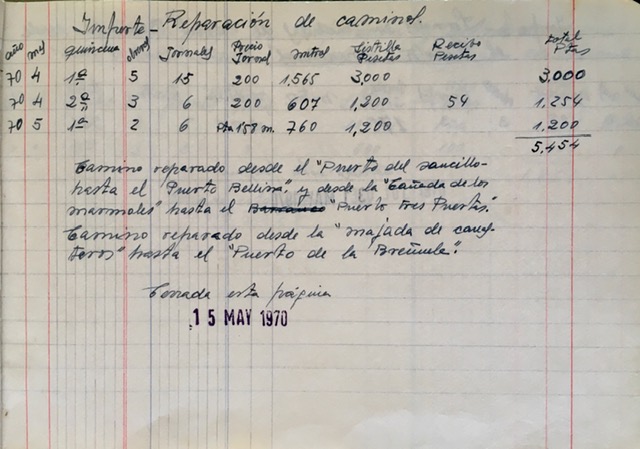 Importe - Reparación de caminos.
año mes quincena obreros Jornales Precio Jornal metros Listilla Pesetas Recibo Pesetas total Ptas
70 4 1ª 5 15 200 1,565 3,000 3,000
70 4 2ª 3 6 200 607 1,200 54 1.254
70 5 1ª 2 6 1'58 m. 760 1,200 1.200
5,454
Camino reparado desde el "Puerto del
hasta el "Puerto Bellina" y desde la "Cañada de los
marmoles" hasta el Barranco "Puerto tres Puertas".
Camino reparado desde la "majada de
teros" hasta el "Puerto de la Breñuela".
Cerrada esta página
15 MAY 1970